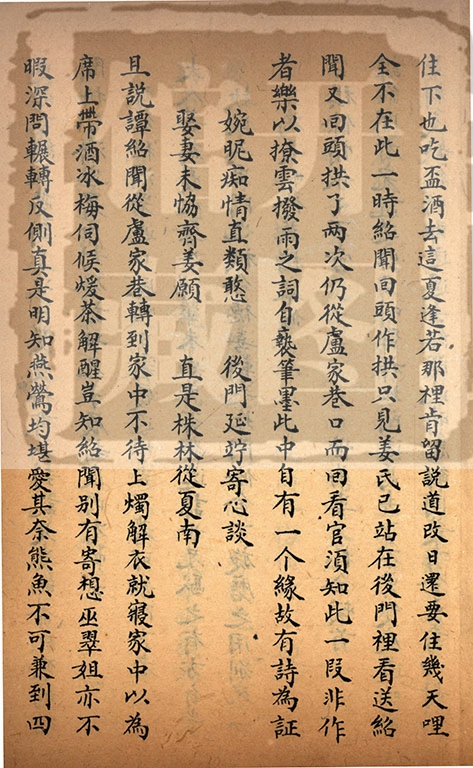 住下也吃盃酒去這夏逢若那裡肯留說道改日還要住幾天哩
全不在此一時紹聞回頭作拱只見姜氏已站在後門裡看送紹
聞又回頭拱了两次仍從盧家巷口而回看官須知此一叚非作
者樂以撩雲撥雨之詞自褻筆墨此中自有一个緣故有詩為証
婉昵痴情直類憨 後門延竚寄心談
娶妻未恊齊姜願 直是株林從夏南
且說譚紹聞從盧家巷轉到家中不待上燭解衣就寢家中以為
席上帶酒冰梅伺候煖茶解醒豈知紹聞别有寄想巫翠姐亦不
暇深問輾轉反側真是明知燕鶯均堪愛其奈熊魚不可兼到四